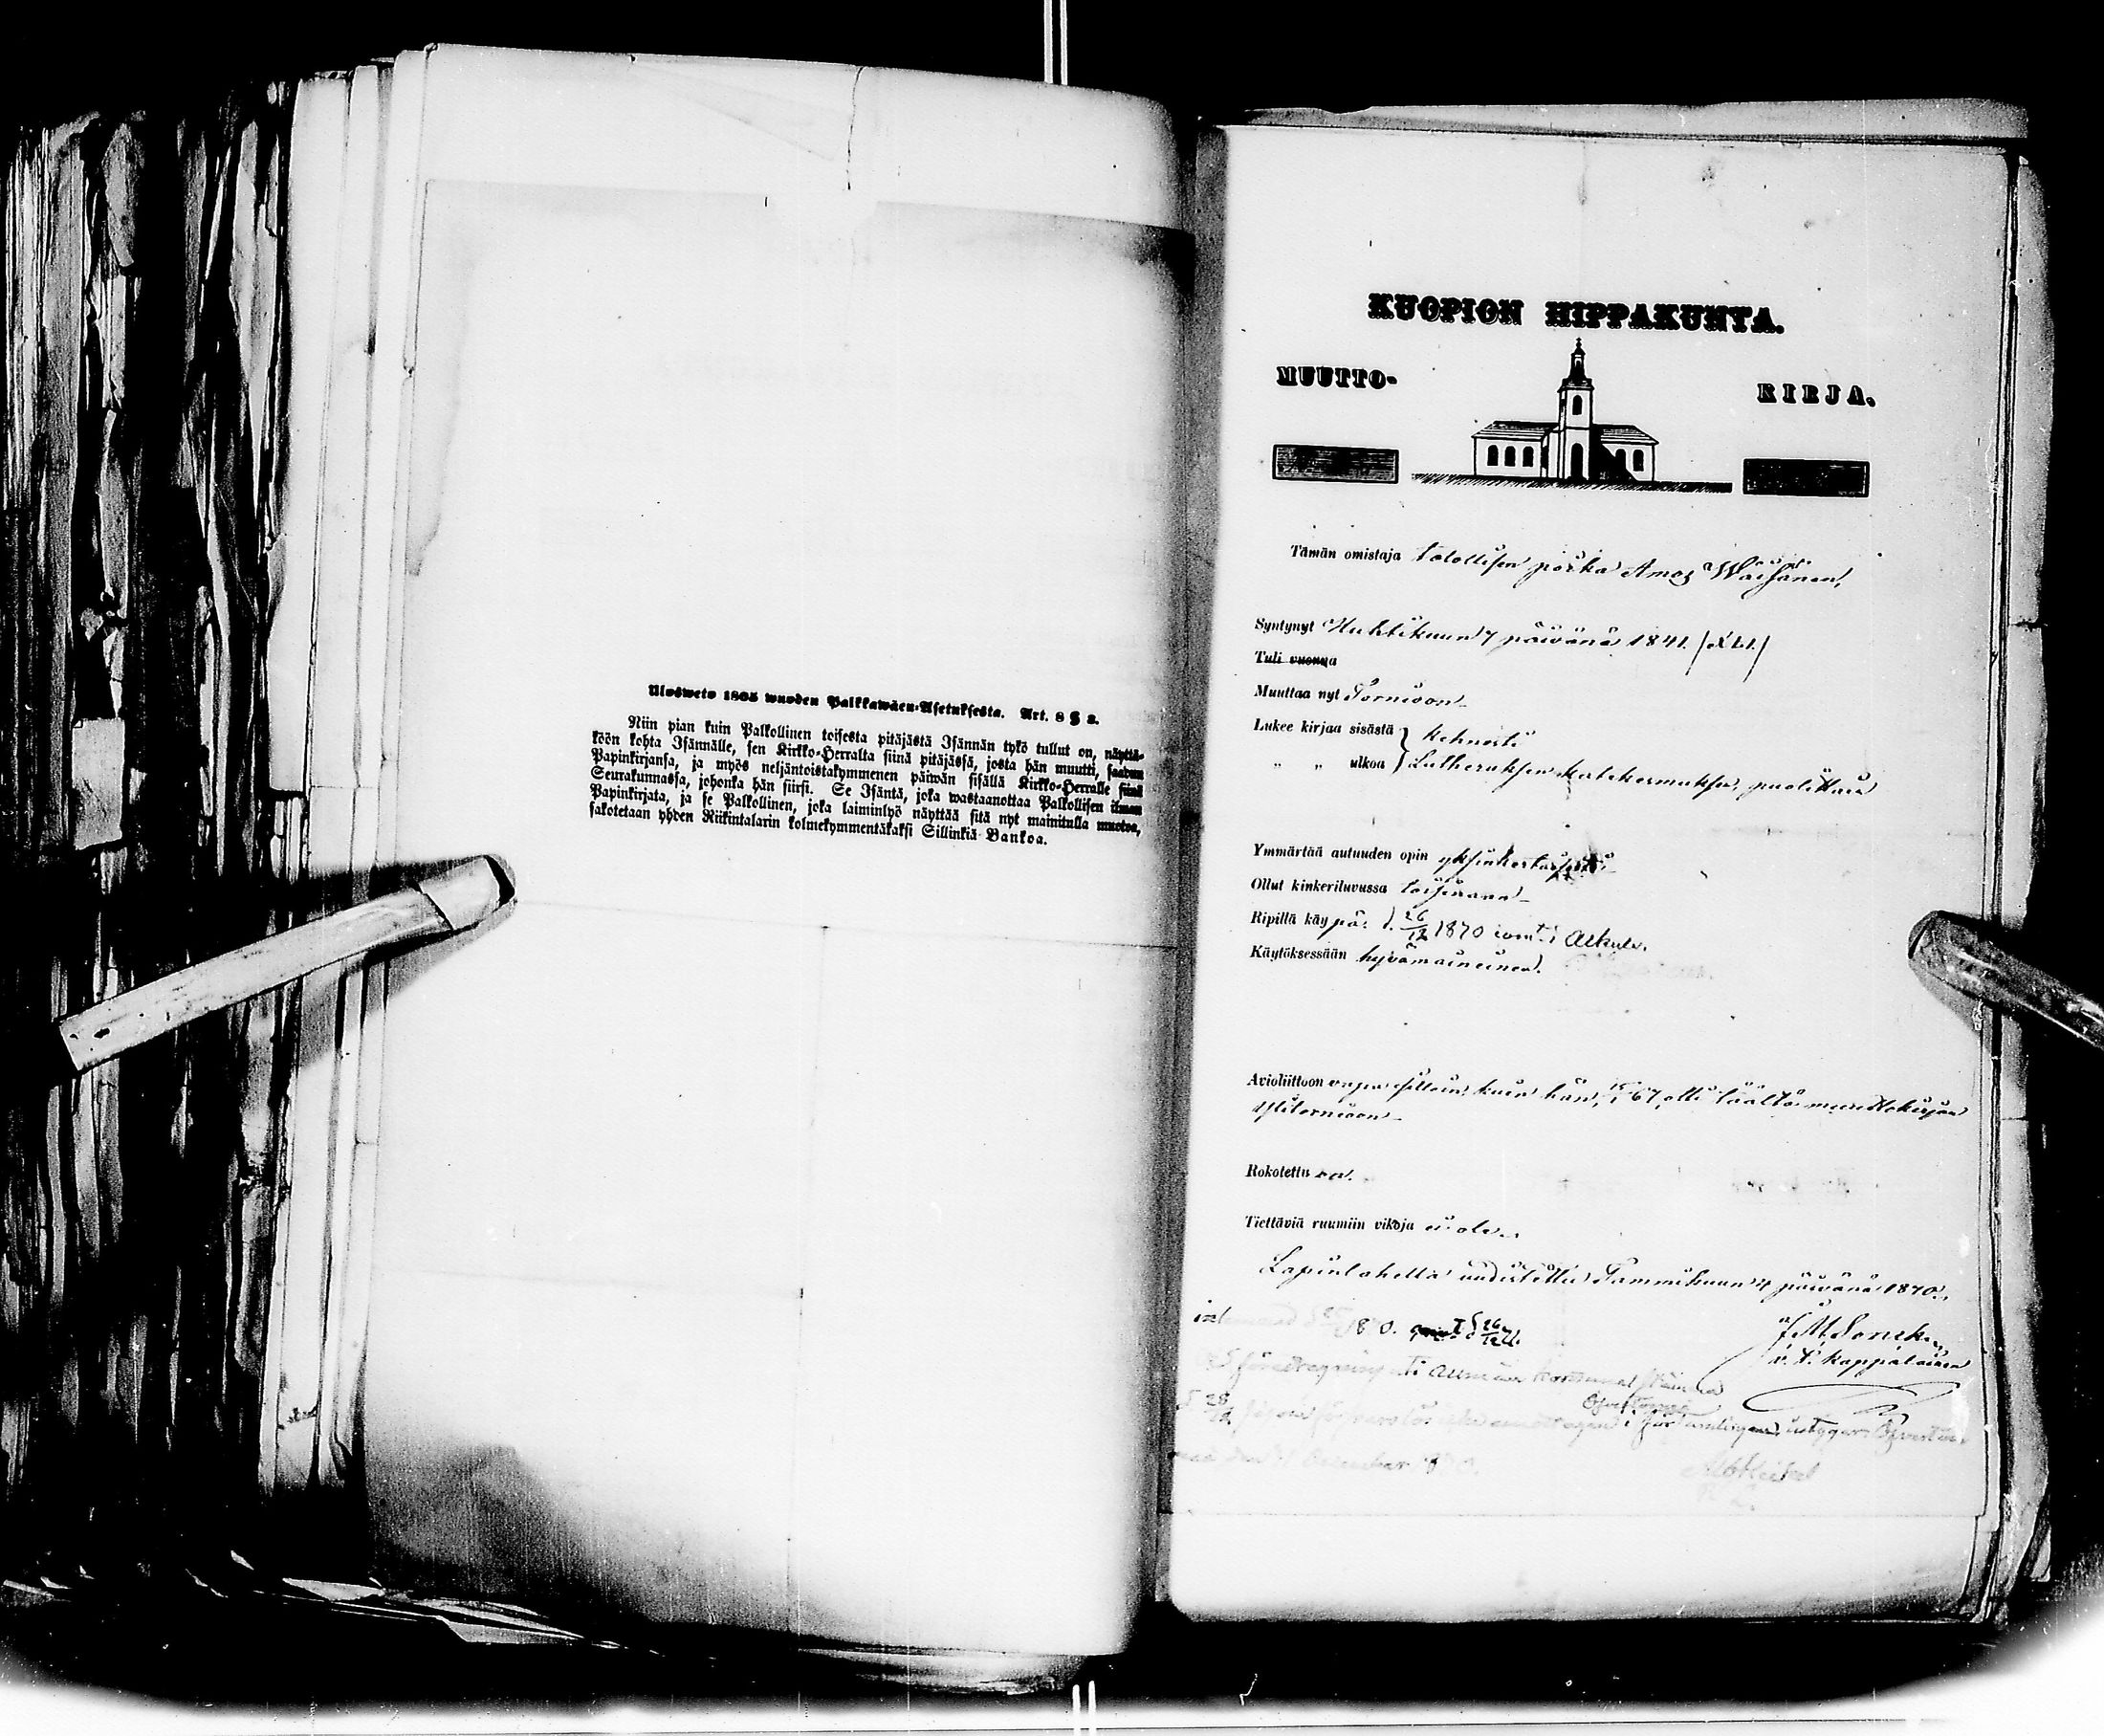 Ulosweto 1805 wuoden Palkkawäen-Asetuksesta. Art. 8 § 3.
Niin pian kuin Palkollinen toisesta pitäjästä Isännän tykö tullut on, näyttä-
köön kohta Isännälle, sen Kirkko-Herralta siinä pitäjässä, josta hän muutti, saadun
Papinkirjansa, ja myös neljäntoistakymmenen päiwän sisällä Kirkko-Herralle siinä
Seurakunnassa, johonka hän siirsi. Se Isäntä, joka wastaanottaa Palkollisen ilman
Papinkirjata, ja se Palkollinen, joka laiminlyö näyttää sitä nyt mainitulla muotoa,
sakotetaan yhden Riikintalarin kolmekymmentäkaksi Sillinkiä Bankoa.
KUOPION HIPPAKUNTA.
MUUTTO- KIRJA.
Tämän omistaja talollisen poika Amos Wäisänen,
Syntynyt Huhtikuun 7 päivänä 1841. /XLI./
Tuli vuonna
Muuttaa nyt Tornioon
Lukee kirjaa sisästä kehnosti
„ „ ulkoa Lutheruksen katekesmuksen puolittain
Ymmärtää autuuden opin yksinkertaisesti
Ollut kinkeriluvussa toisinaan
Ripillä käypä. d. 26/12 1870 i Alkula.
Käytöksessään hyvämaineinen.
Avioliittoon vapa silloin kuin hän, 67, otti täältä muuttokirjan
Ylitornioon
Rokotettu on.
Tiettäviä ruumiin vikoja ei ole.
Lapinlahella uudistettu Tammikuun 4 päivänä 1870.
J. M. Sonck
v. t. kappalainen